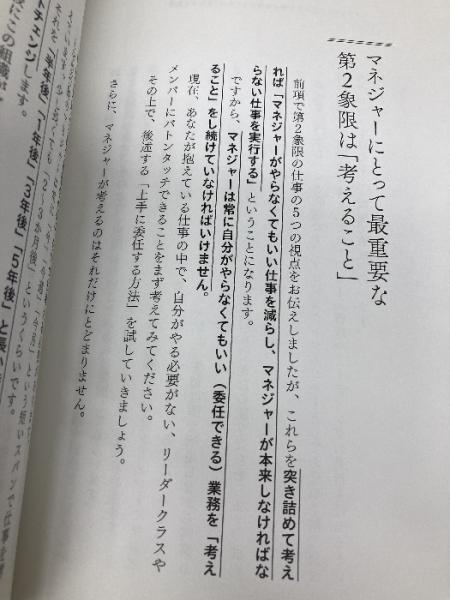 マネジャーにとって最重要な
第2象限は「考えること」
前項で第2象限の仕事の5つの視点をお伝えしましたが、これらを突き詰めて考え
れば「マネジャーがやらなくてもいい仕事を減らし、マネジャーが本来しなければな
らない仕事を実行する」ということになります。
ですから、マネジャーは常に自分がやらなくてもいい（委任できる）業務を「考え
ること」をし続けていなければいけません。
現在、あなたが抱えている仕事の中で、自分がやる必要がない、リーダークラスや
メンバーにバトンタッチできることをまず考えてみてください。
その上で、後述する「上手に委任する方法」を試していきましょう。
さらに、マネジャーが考えるのはそれだけにとどまりません。
「今週」「今月」という短いスパンで仕事を
「2、3か月後」というくらいです。
それを「半年後」「1年後」「3年後」「5年後」と長い
トチェンジします。
にこの組織が